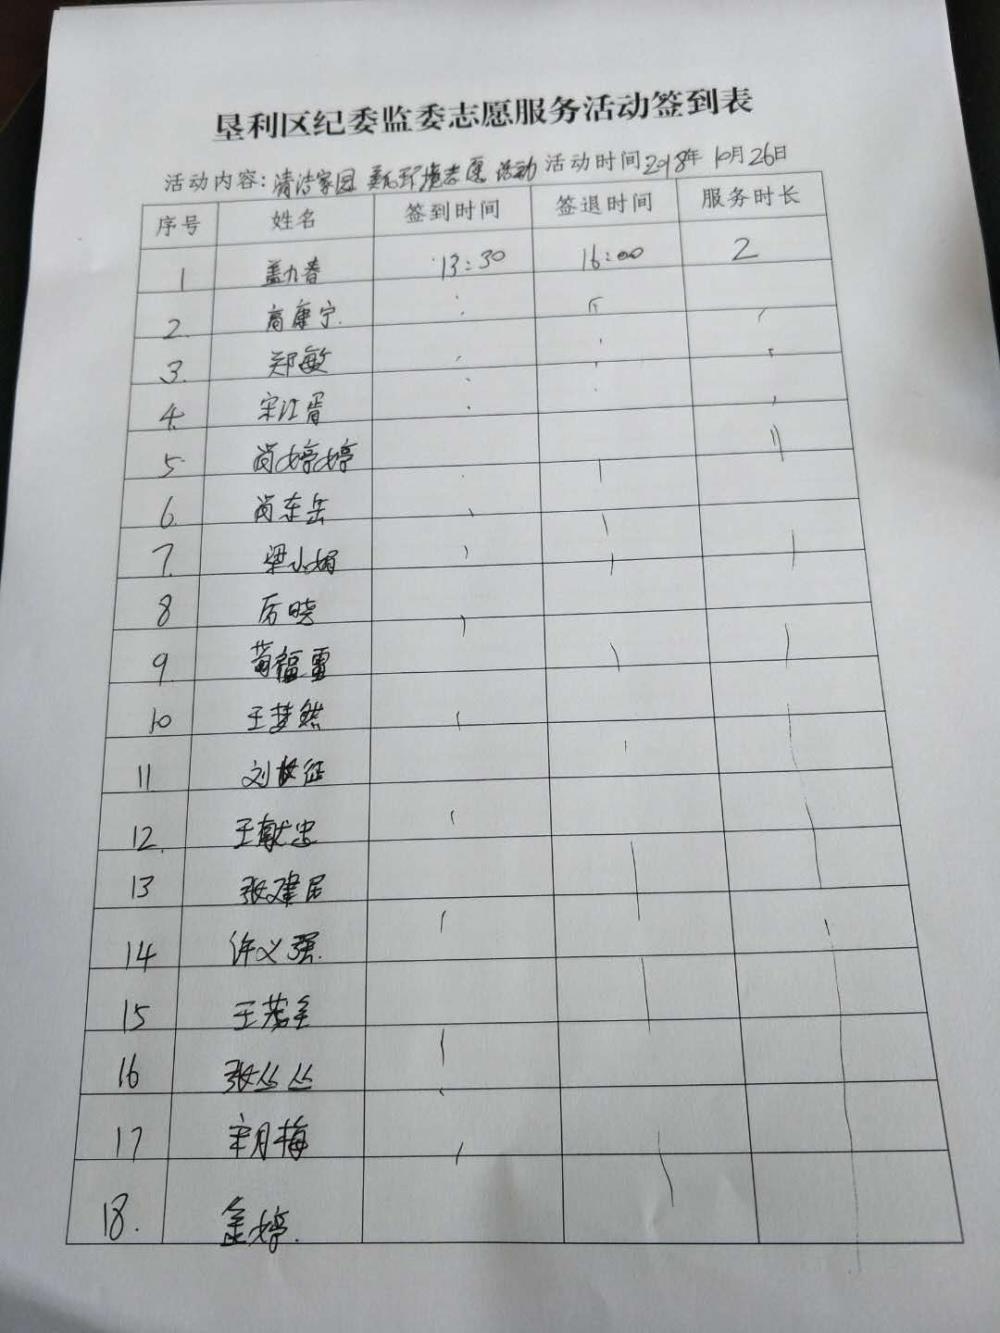 垦利区纪委监委志愿服务活动签到表
活动内容:清洁家园 美化环境志愿活动 活动时间2018年10月26日
序号 姓名 签到时间 签退时间 服务时长
1 盖九春 13:30 16:00 2
2. 高康宁.
3. 郑敏
4.
5 尚婷婷
6. 尚东岳
7. 梁小娟
8 厉晓
9. 苟福雷
10 王梦然
11 刘
12. 王献忠
13 张建民
14 许义强.
15 王茂全
16 张丛丛
17 月梅
18. 金婷.